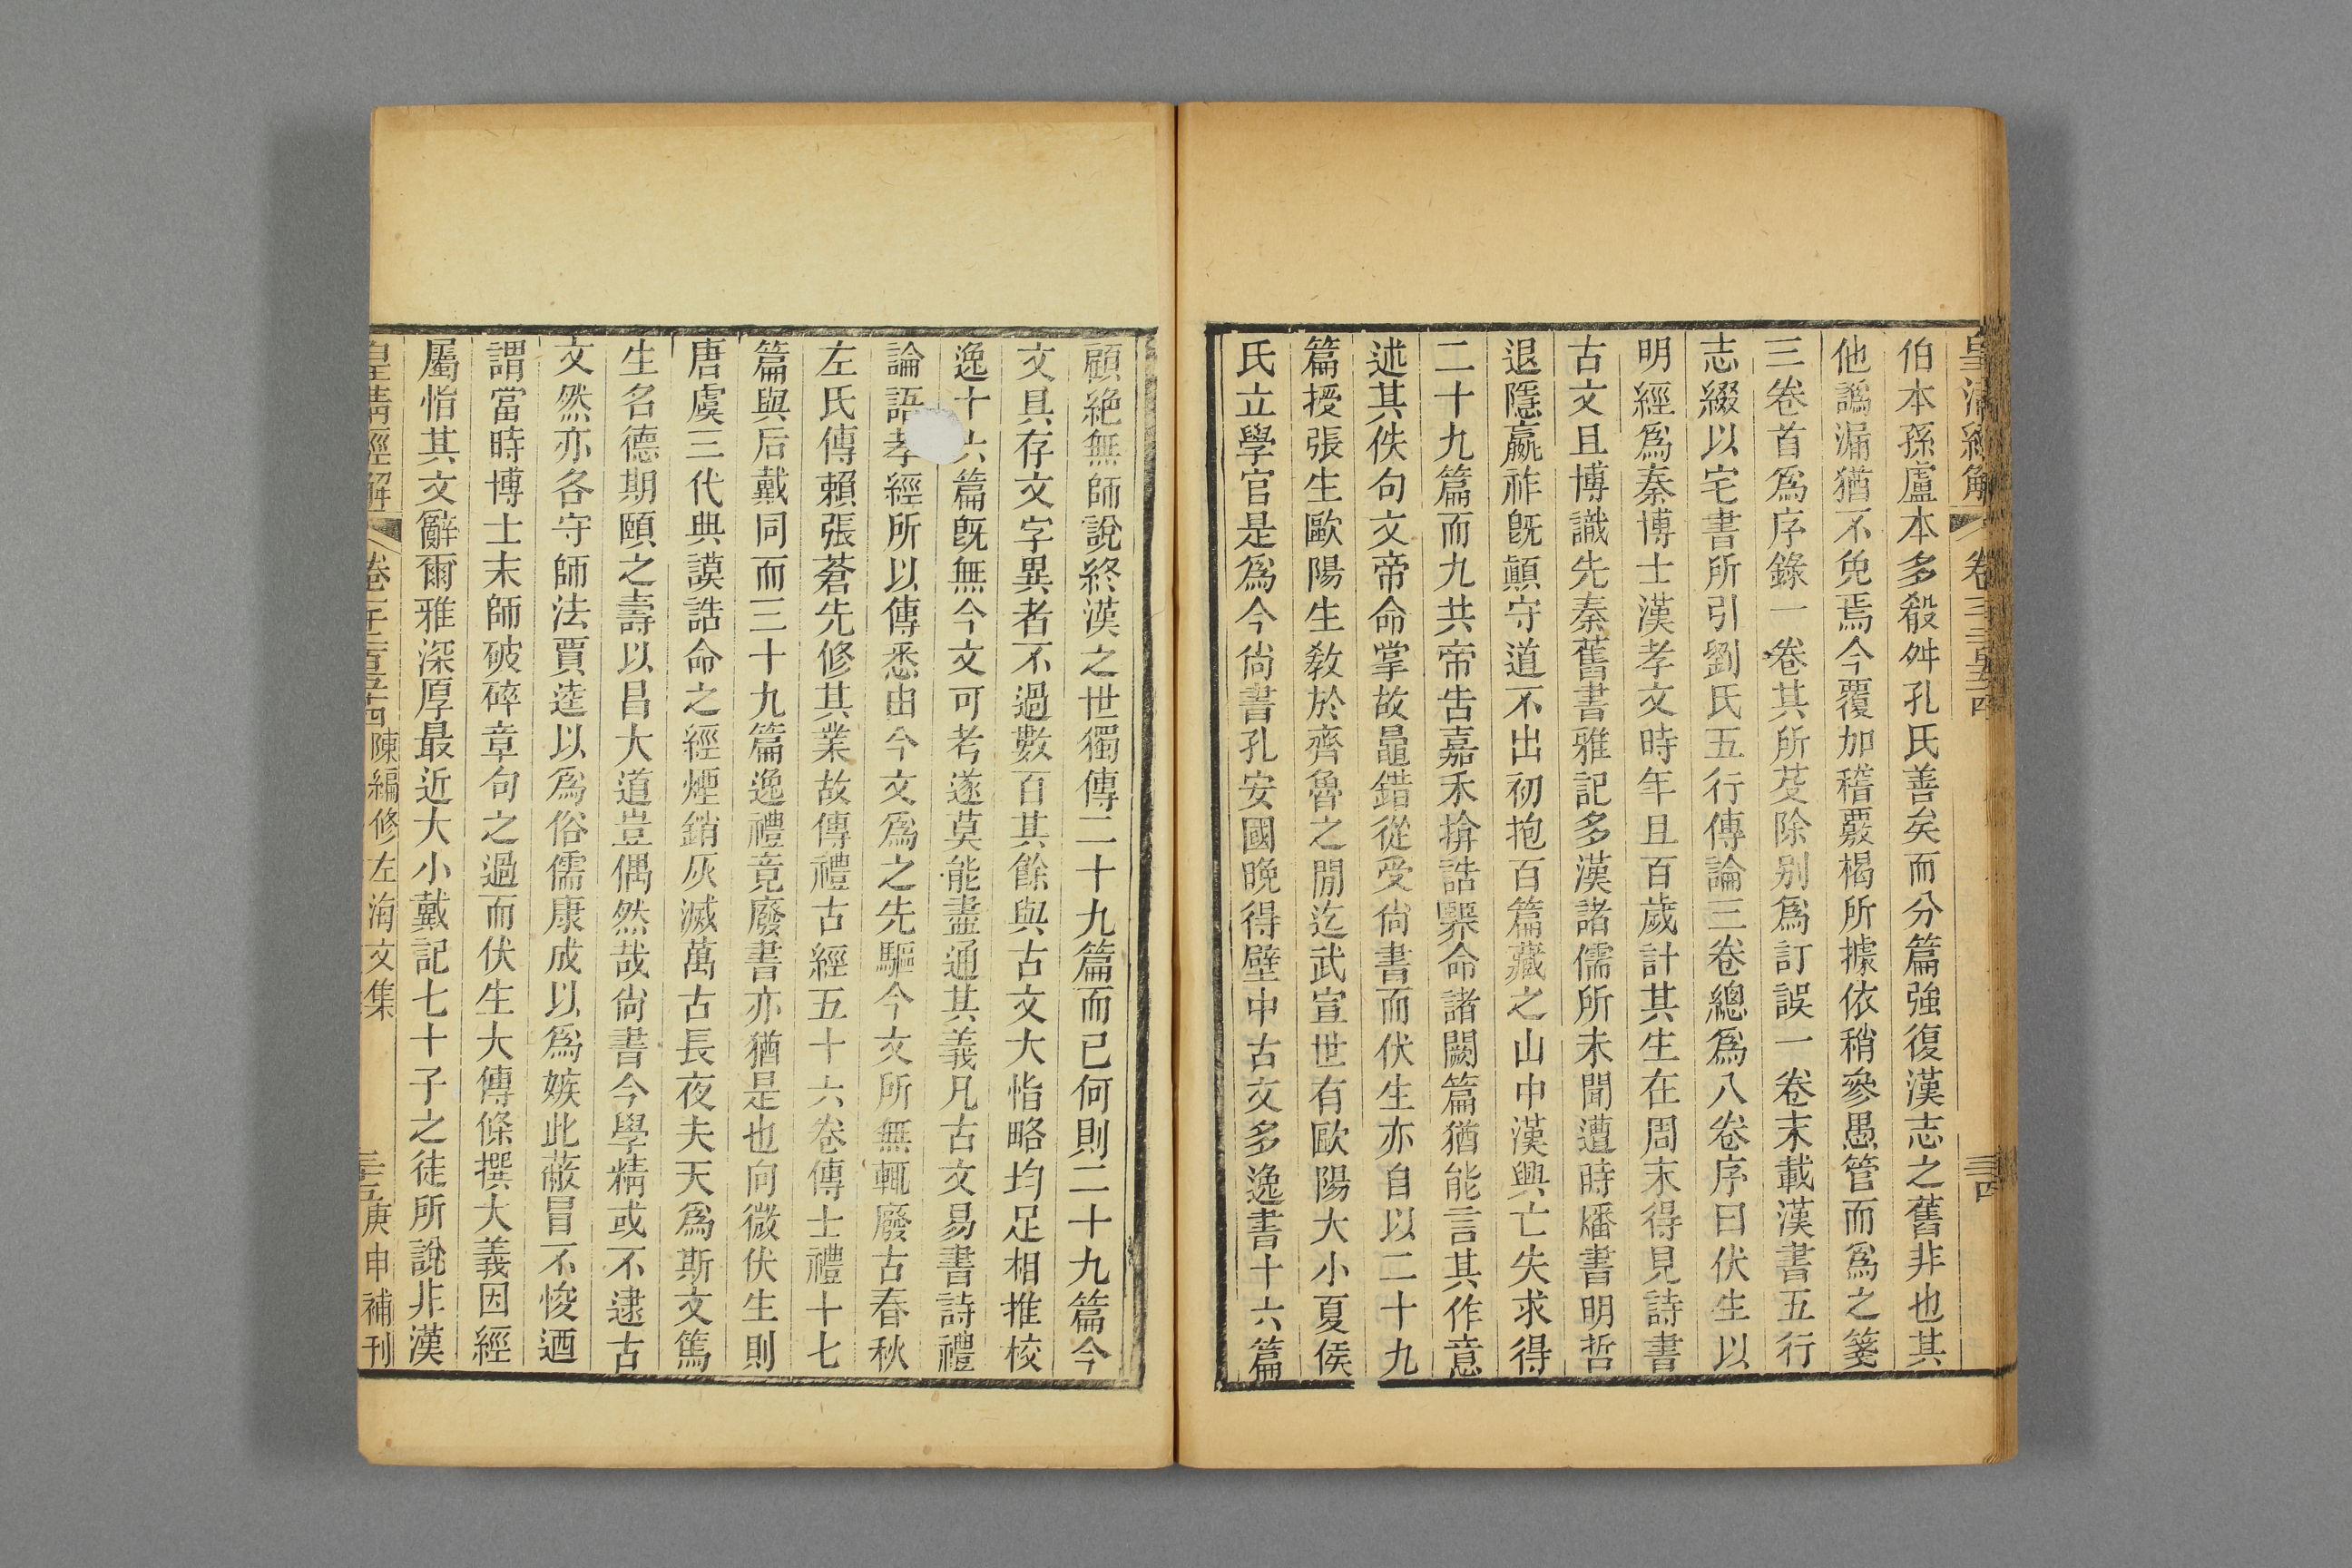 皇清經解 卷千二百五十四 三四
伯本孫盧本多殽舛孔氏善矣而分篇強復漢志之舊非也其
他譌漏猶不免焉今覆加稽覈楬所據依稍參愚管而爲之箋
三卷首爲序錄一卷其所芟除别爲訂誤一卷末載漢書五行
志綴以宅書所引劉氏五行傳論三卷總爲八卷序曰伏生以
明經爲秦博士漢孝文時年且百歲計其生在周末得見詩書
古文且博識先秦舊書雅記多漢諸儒所未聞遭時燔書明哲
退隱嬴祚旣顚守道不出初抱百篇藏之山中漢興亡失求得
二十九篇而九共帝告嘉禾揜誥臩命諸闕篇猶能言其作意
述其佚句文帝命掌故鼂錯從受尙書而伏生亦自以二十九
篇授張生歐陽生敎於齊魯之閒迄武宣世有歐陽大小夏侯
氏立學官是爲今尙書孔安國晚得壁中古文多逸書十六篇
顧絶無師說終漢之世獨傳二十九篇而已何則二十九篇今
文具存文字異者不過數百其餘與古文大恉略均足相推校
逸十六篇旣無今文可考遂莫能盡通其義凡古文易書詩禮
論語孝經所以傳悉由今文爲之先驅今文所無輒廢古春秋
左氏傳賴張蒼先修其業故傳禮古經五十六卷傳士禮十七
篇與后戴同而三十九篇逸禮竟廢書亦猶是也向微伏生則
唐虞三代典謨誥命之經煙銷灰滅萬古長夜夫天爲斯文篤
生名德期頤之壽以昌大道豈偶然哉尙書今學精或不逮古
文然亦各守師法賈逵以爲俗儒康成以爲嫉此蔽冒不悛迺
謂當時博士末師破碎章句之過而伏生大傳條撰大義因經
屬恉其文辭爾雅深厚最近大小戴記七十子之徒所說非漢
皇清經解 卷千二百五十四 陳編修左海文集 三五 庚申補刊